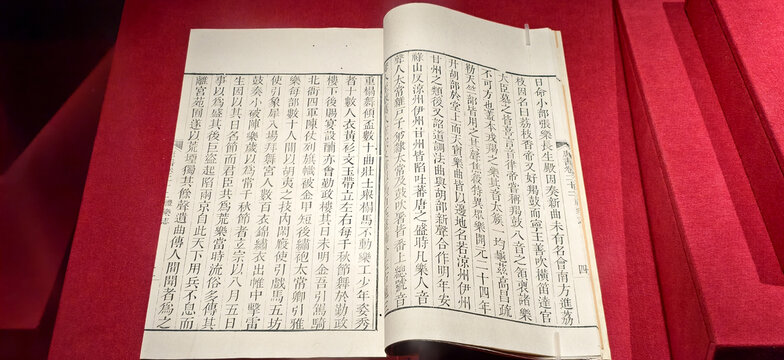 日命小部張樂長生殿因奏新曲未有名會南方進荔
枝因名曰荔枝香帝又好羯鼓而寧王善吹橫笛達官
大臣慕之皆喜言音律帝嘗稱羯鼓八音之領袖諸樂
不可方也蓋本戎羯之樂其音太蔟一均龜茲高昌疏
勒天竺部皆用之其聲焦殺特異眾樂開元二十四年
升胡部於堂上而天寶樂曲皆以邊地名若涼州伊州
甘州之類後又詔道調法曲與胡部新聲合作明年安
祿山反涼州伊州甘州皆陷吐蕃唐之盛時凡樂人音
聲人太常雜戶子弟隸太常及鼓吹署皆番上總號音
四
重榻舞傾盃數十曲壯士舉榻馬不動樂工少年姿秀
者十數人衣黃衫文玉帶立左右每千秋節舞於勤政
樓下後賜宴設酺亦會勤政樓其日未明金吾引駕騎
北衙四軍陳仗列旗幟被金甲短後繡袍太常卿引雅
樂每部數十人間以胡夷之技內閑廄使引戲馬五坊
使引象犀入場拜舞宮人數百衣錦繡衣出帷中擊雷
鼓奏小破陣樂歲以為常千秋節者玄宗以八月五日
生因以其日名節而君臣共為荒樂當時流俗多傳其
事以為盛其後巨盜起陷兩京自此天下用兵不息而
離宮苑囿遂以荒堙獨其餘聲遺曲傳人間聞者為之
禮樂志